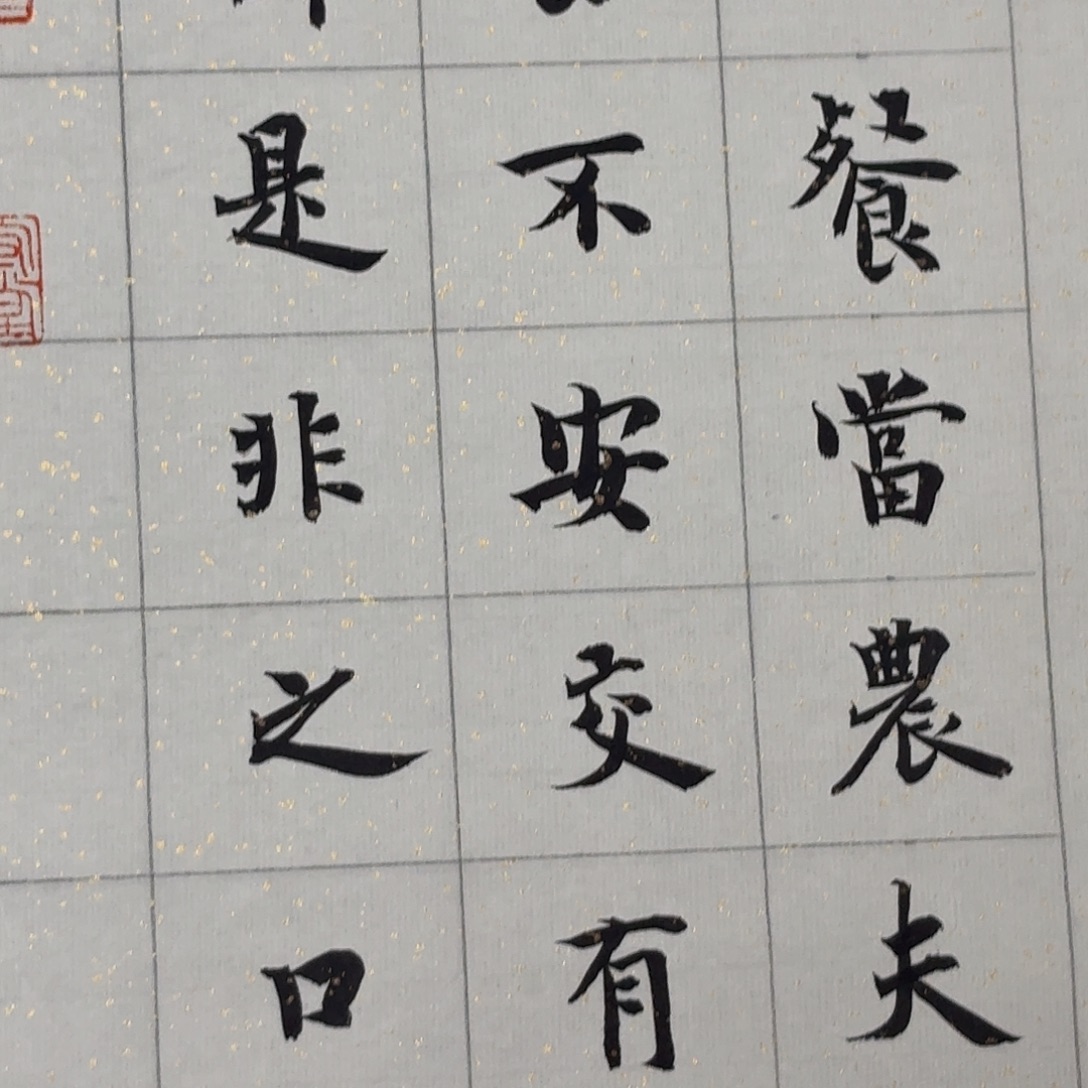 餐當農夫
不安交有
是非之口